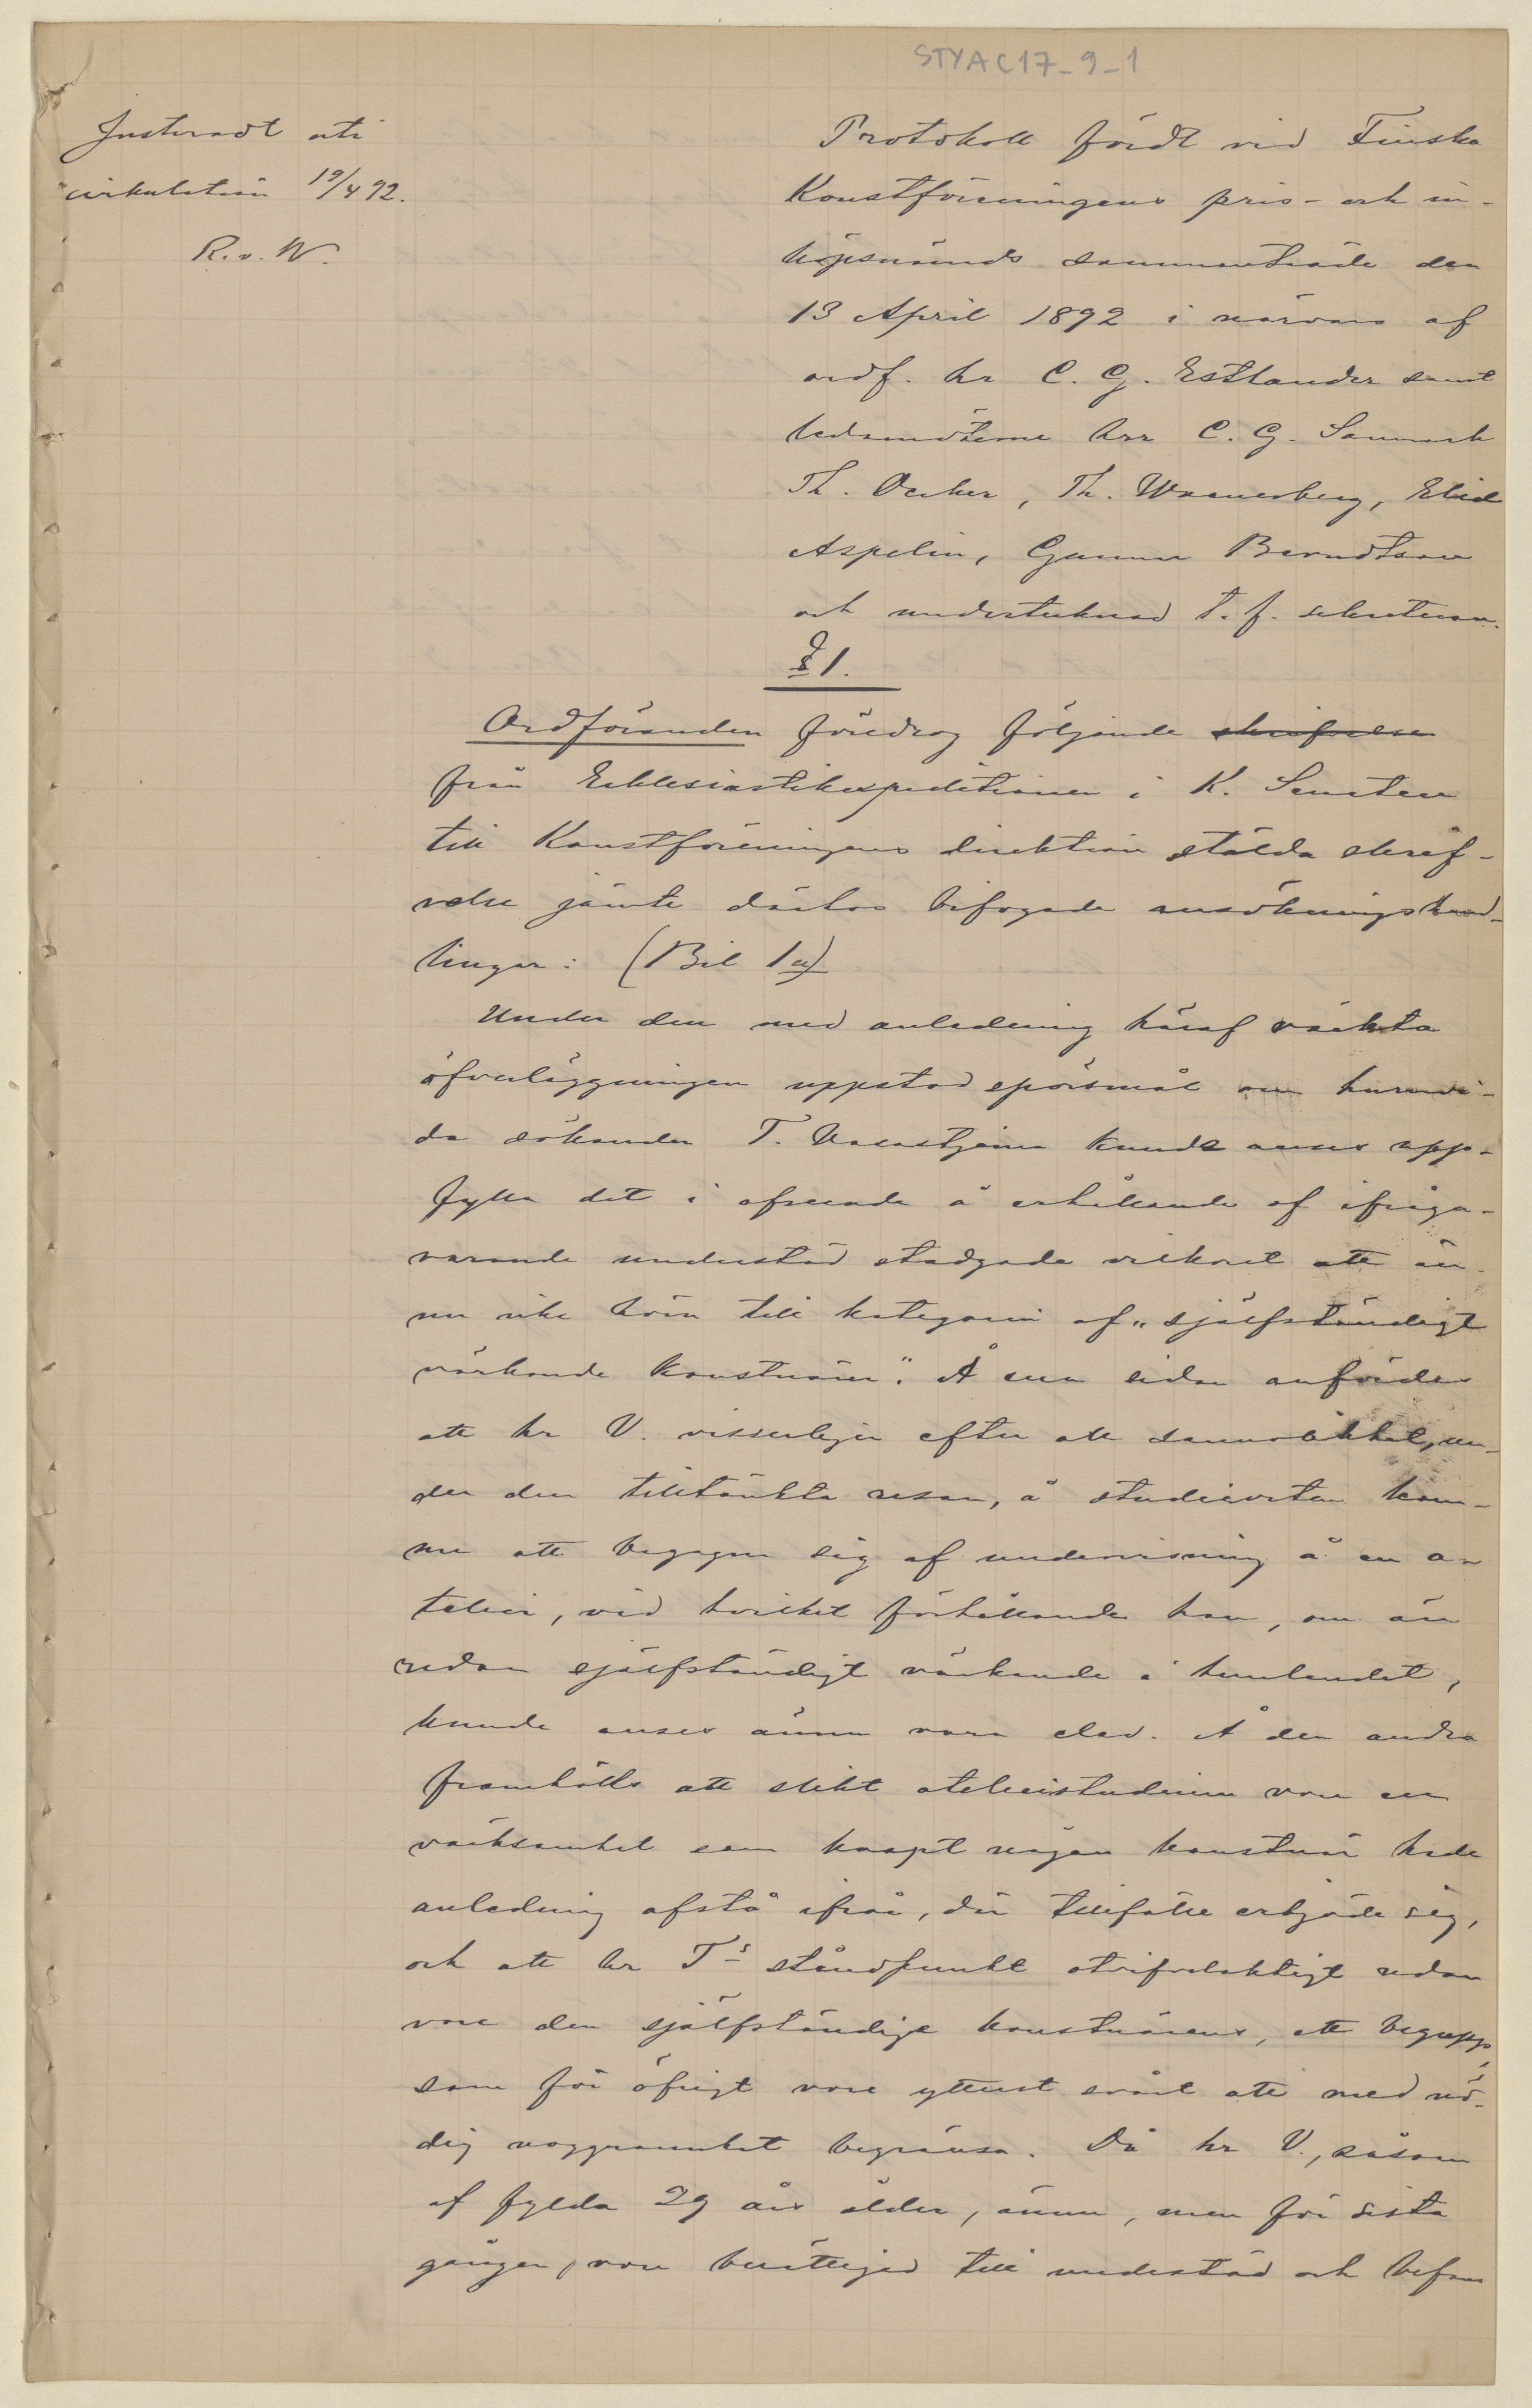 STYA C17_9_1
Justeradt uti
cirkulation 19/4 92.
R. v. W.
Protokoll fördt vid Finska
Konstföreningens pris- och in-
köpsnämds sammanträde den
13 April 1892 i närvaro af
ordf. hr C. G. Estlander samt
ledamöterne hrr C. G. Sanmark
Th. Decker, Th. Waenerberg, Eliel
Aspelin, Gunnar Berndtson
och undertecknad t. f. sekreterare.
§ 1.
Ordföranden föredrog följande skrifvelse
från Ecklesiastikexpeditionen i K. Senaten
till Konstföreningens direktion stälda skrif-
velse jämte därhos bifogade ansökningshand-
lingar: (Bil 1a)
Under den med anledning häraf väckta
öfverläggningen uppstod spörsmål om huruvi-
da sökanden T. Waenerberg kunde anses upp-
fylla det i afseende å erhållande af ifråga-
varande understöd stadgade vilkoret att än-
nu icke höra till kategorin af „självständigt
värkande konstnärer". Å ena sidan anfördes
att hr V. visserligen efter all sannolikhet, un-
der den tilltänkta resan, å studieorten kom-
me att begagna sig af undervisning å en a-
telier, vid hvilket förhållande han, om än
redan själfständigt värkande i hemlandet,
kunde anses ännu vara elev. Å den andra
framhölls att slikt atelierstudium vore en
värksamhet som knapt någon konstnär hade
anledning afstå ifrån, där tillfälle erbjöde sig,
och att hr T:s ståndpunkt otvifvelaktigt redan
vore den själfständige konstnärens, ett begrepp,
som för öfrigt vore ytterst svårt att med nö-
dig noggrannhet begränsa. Då hr V., såsom
af fylda 29 års ålder, ännu, men för sista
gången, vore berättigad till understöd och befans